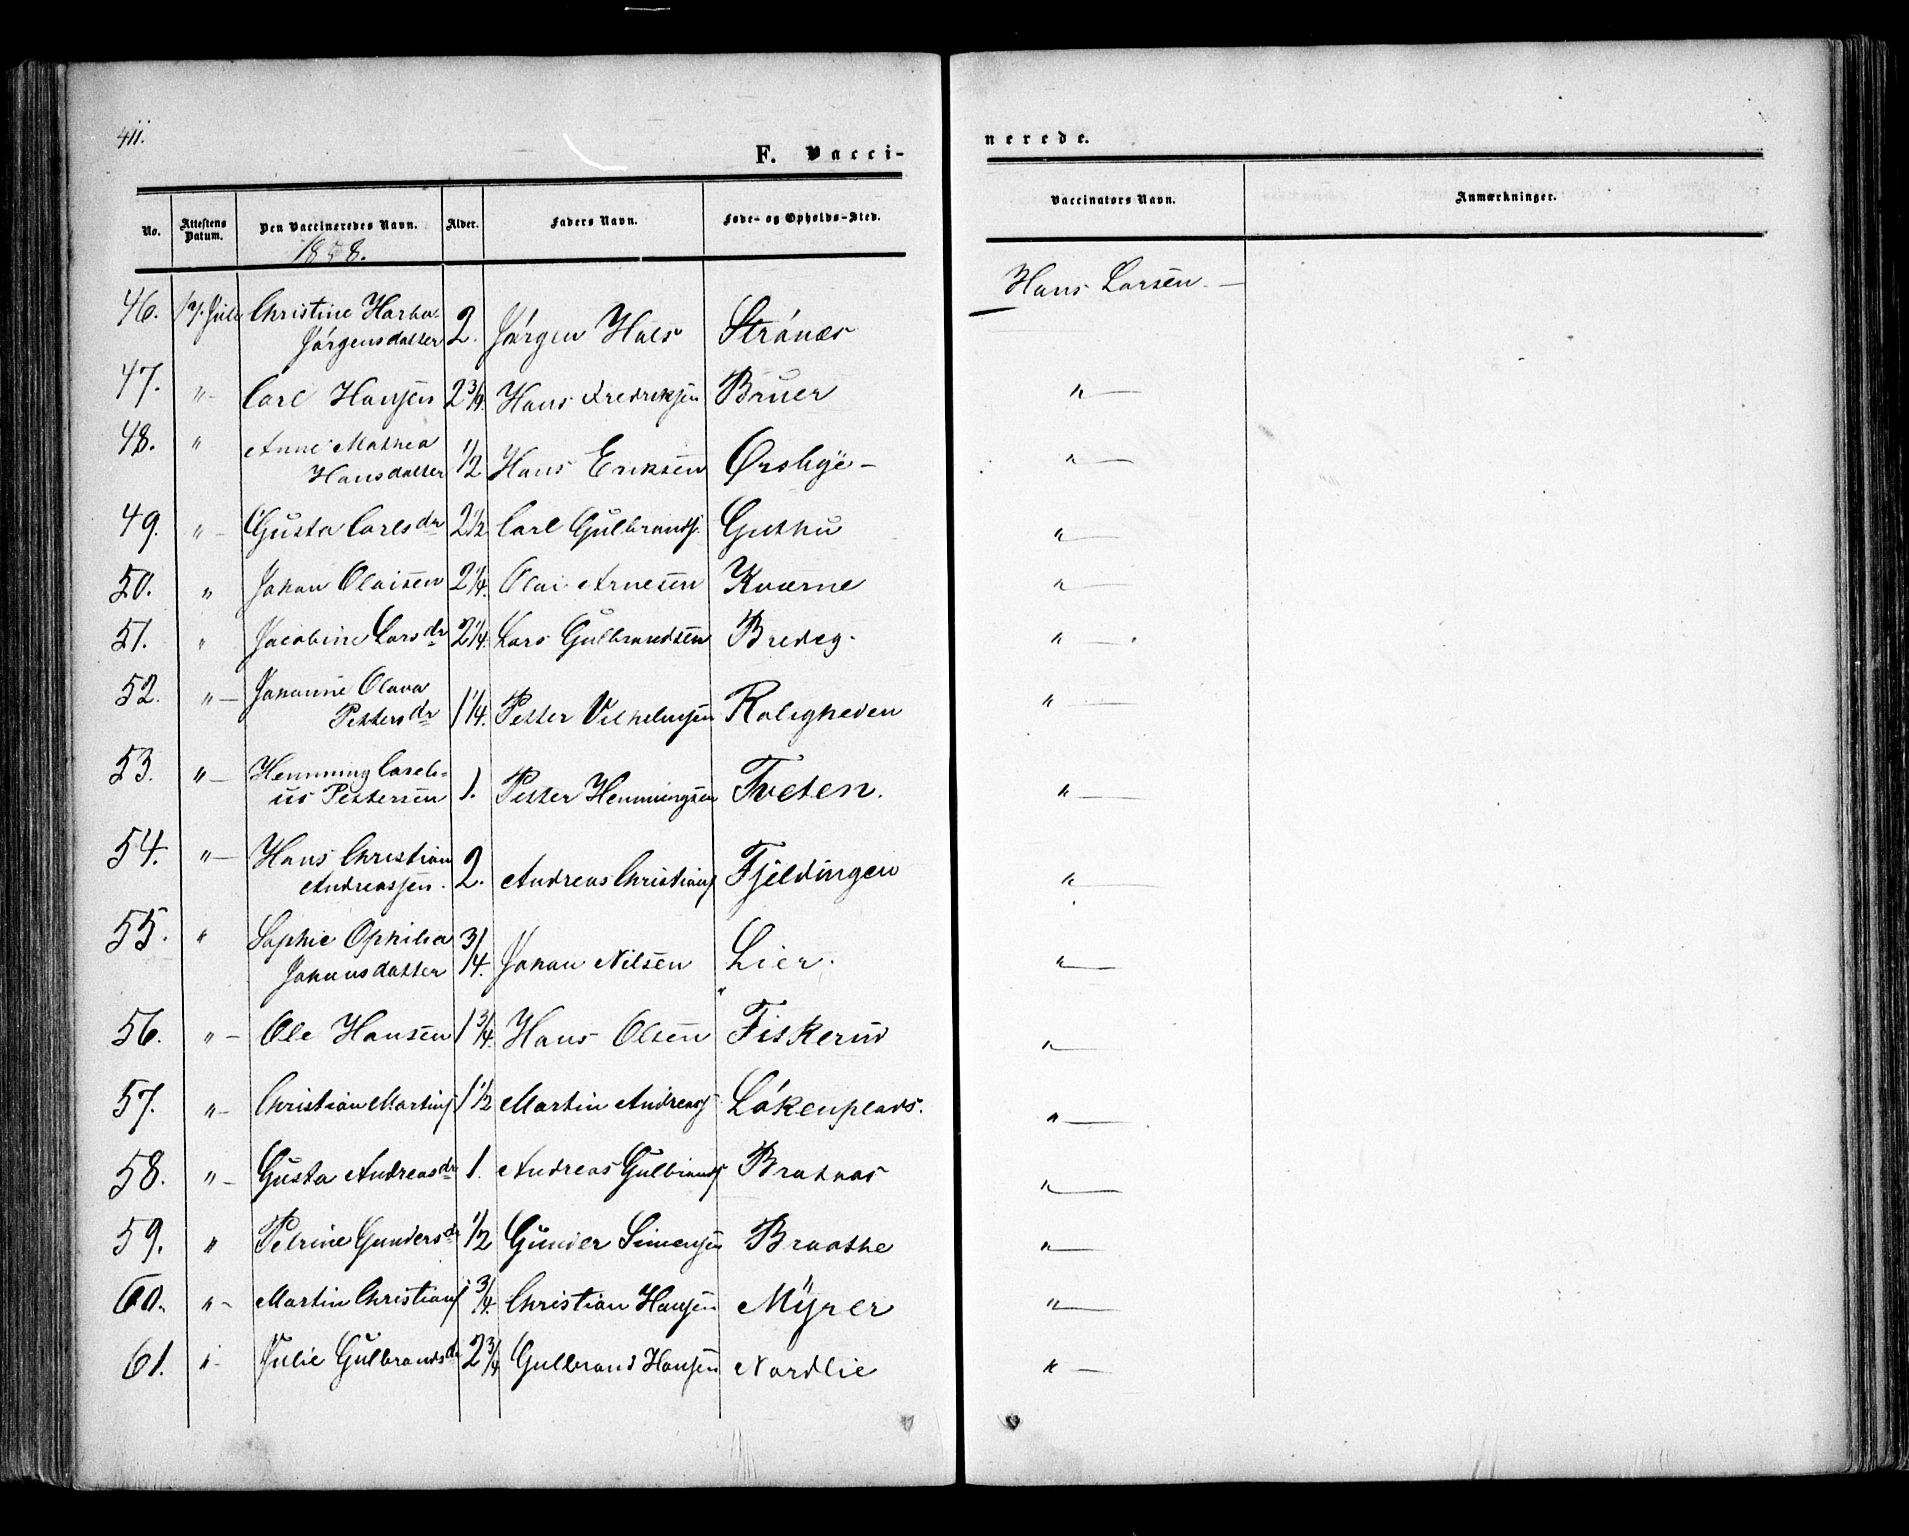 411.
F. Vacci-
nerede.
No.
Attestens Datum.
Den Vaccineredes Navn.
Alder.
Faders Navn.
Føde- og Opholds-Sted.
Vaccinators Navn.
Anmærkninger.
1858.
46. Juli Christine
Jørgensdatter 2. Jørgen Hals Strånæs Hans Larsen. —
47. " Carl Hansen 2 3/4 Hans Fredriksen Bruer " —
48. " Anne Mathea
Hansdatter 1/2 Hans Eriksen Ørsbye — " —
49. " Gusta Carlsdr 2 1/2 Carl Gulbrands. Guthu " —
50. " Johan Olaisen 2 1/4. Olai Arnesen Kværne " —
51. " Jacobine Larsdr 2 1/4. Lars Gulbrandsen Bredeg. " —
52. " — Johanne Olava
Pettersdr 1 1/4. Petter Vilhelmsen Roligheden " —
53. " — Hemming Coreli-
us Pettersen 1. Petter Hemmingsen Tveten. " —
54. " — Hans Christian
Andreassen. 2. Andreas Christians Fjeldingen " —
55. " Sophie Ophilia
Johansdatter 3/4. Johan Nilsen Lier. " —
56. " — Ole Hansen 1 3/4. Hans Olsen Fiskerud " —
57. " — Christian Martins 1 1/2 Martin Andreas Løkenplads. " —
58. " — Gusta Andreasdr 1. Andreas Gulbrands Bratnæs " —
59. " Petrine Gundersdr 1/2 Gunder Simensen Braathe " —
60. " — Martin Christians 3/4. Christian Hansen Myrer " —
61. " — Julie Gulbrandsdr 2 3/4 Gulbrand Hansen Nordlie " —